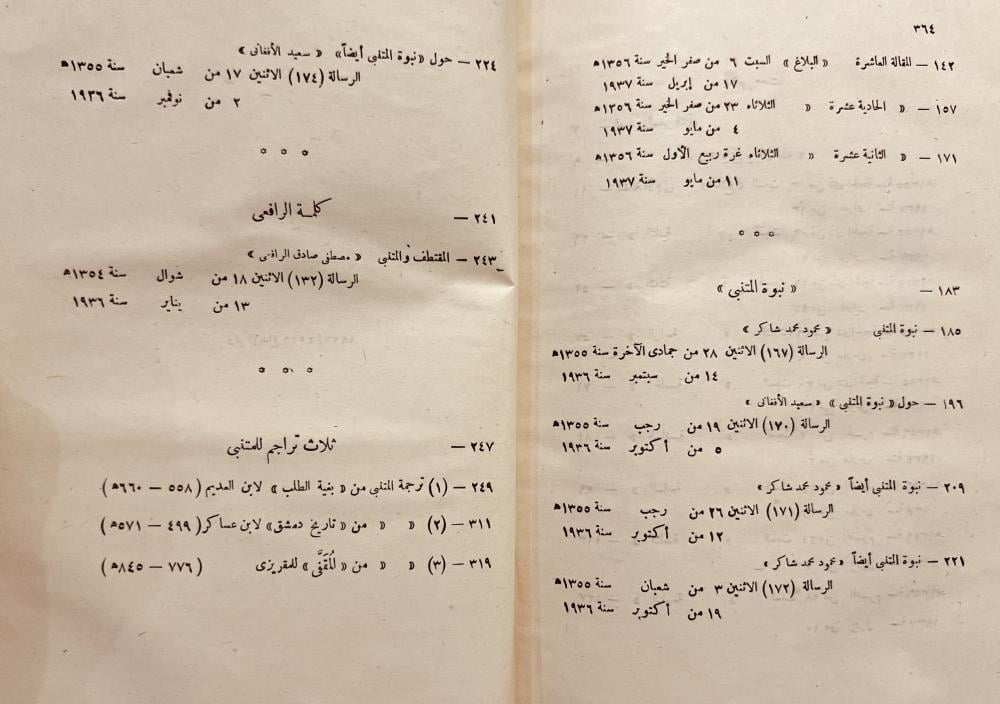 ٣٦٤
١٤٢ — المقالة العاشرة « البلاغ » السبت ٦ من صفر الخير سنة ١٣٥٦ﻫ
١٧ من إبريل سنة ١٩٣٧
١٥٧ — « الحادية عشرة « الثلاثاء ٢٣ من صفر الخير سنة ١٣٥٦ﻫ
٤ من مايو سنة ١٩٣٧
١٧١ — « الثانية عشرة « الثلاثاء غرة ربيع الأول سنة ١٣٥٦ﻫ
١١ من مايو سنة ١٩٣٧
١٨٣ — « نبوة المتنبي »
١٨٥ — نبوة المتنبي « محمود محمد شاكر »
الرسالة (١٦٧) الاثنين ٢٨ من جمادى الآخرة سنة ١٣٥٥ﻫ
١٤ من سبتمبر سنة ١٩٣٦
١٩٦ — حول « نبوة المتنبي » « سعيد الأفغانى »
الرسالة (١٧٠) الاثنين ١٩ من رجب سنة ١٣٥٥ﻫ
٥ من أكتوبر سنة ١٩٣٦
٢٠٩ — نبوة المتنبي أيضاً « محمود محمد شاكر »
الرسالة (١٧١) الاثنين ٢٦ من رجب سنة ١٣٥٥ﻫ
١٢ من أكتوبر سنة ١٩٣٦
٢٢١ — نبوة المتنبي أيضاً « محمود محمد شاكر »
الرسالة (١٧٢) الاثنين ٣ من شعبان سنة ١٣٥٥ﻫ
١٩ من أكتوبر سنة ١٩٣٦
٢٢٤ — حول « نبوة المتنبي أيضاً » « سعيد الأفغانى »
الرسالة (١٧٤) الاثنين ١٧ من شعبان سنة ١٣٥٥ﻫ
٢ من نوفمبر سنة ١٩٣٦
٢٤١ — كلمة الرافعى
٢٤٣ — المقتطف والمتنبي « مصطفى صادق الرافعى »
الرسالة (١٣٢) الاثنين ١٨ من شوال سنة ١٣٥٤ﻫ
١٣ من يناير سنة ١٩٣٦
٢٤٧ — ثلاث تراجم للمتنبي
٢٤٩ — (١) ترجمة المتنبي من « بغية الطلب » لابن العديم (٥٥٨ — ٦٦٠ﻫ)
٣١١ — (٢) « « من « تاريخ دمشق » لابن عساكر (٤٩٩ — ٥٧١ﻫ)
٣١٩ — (٣) « « من « المُقَفَّى » للمقريزى (٧٧٦ — ٨٤٥ﻫ)